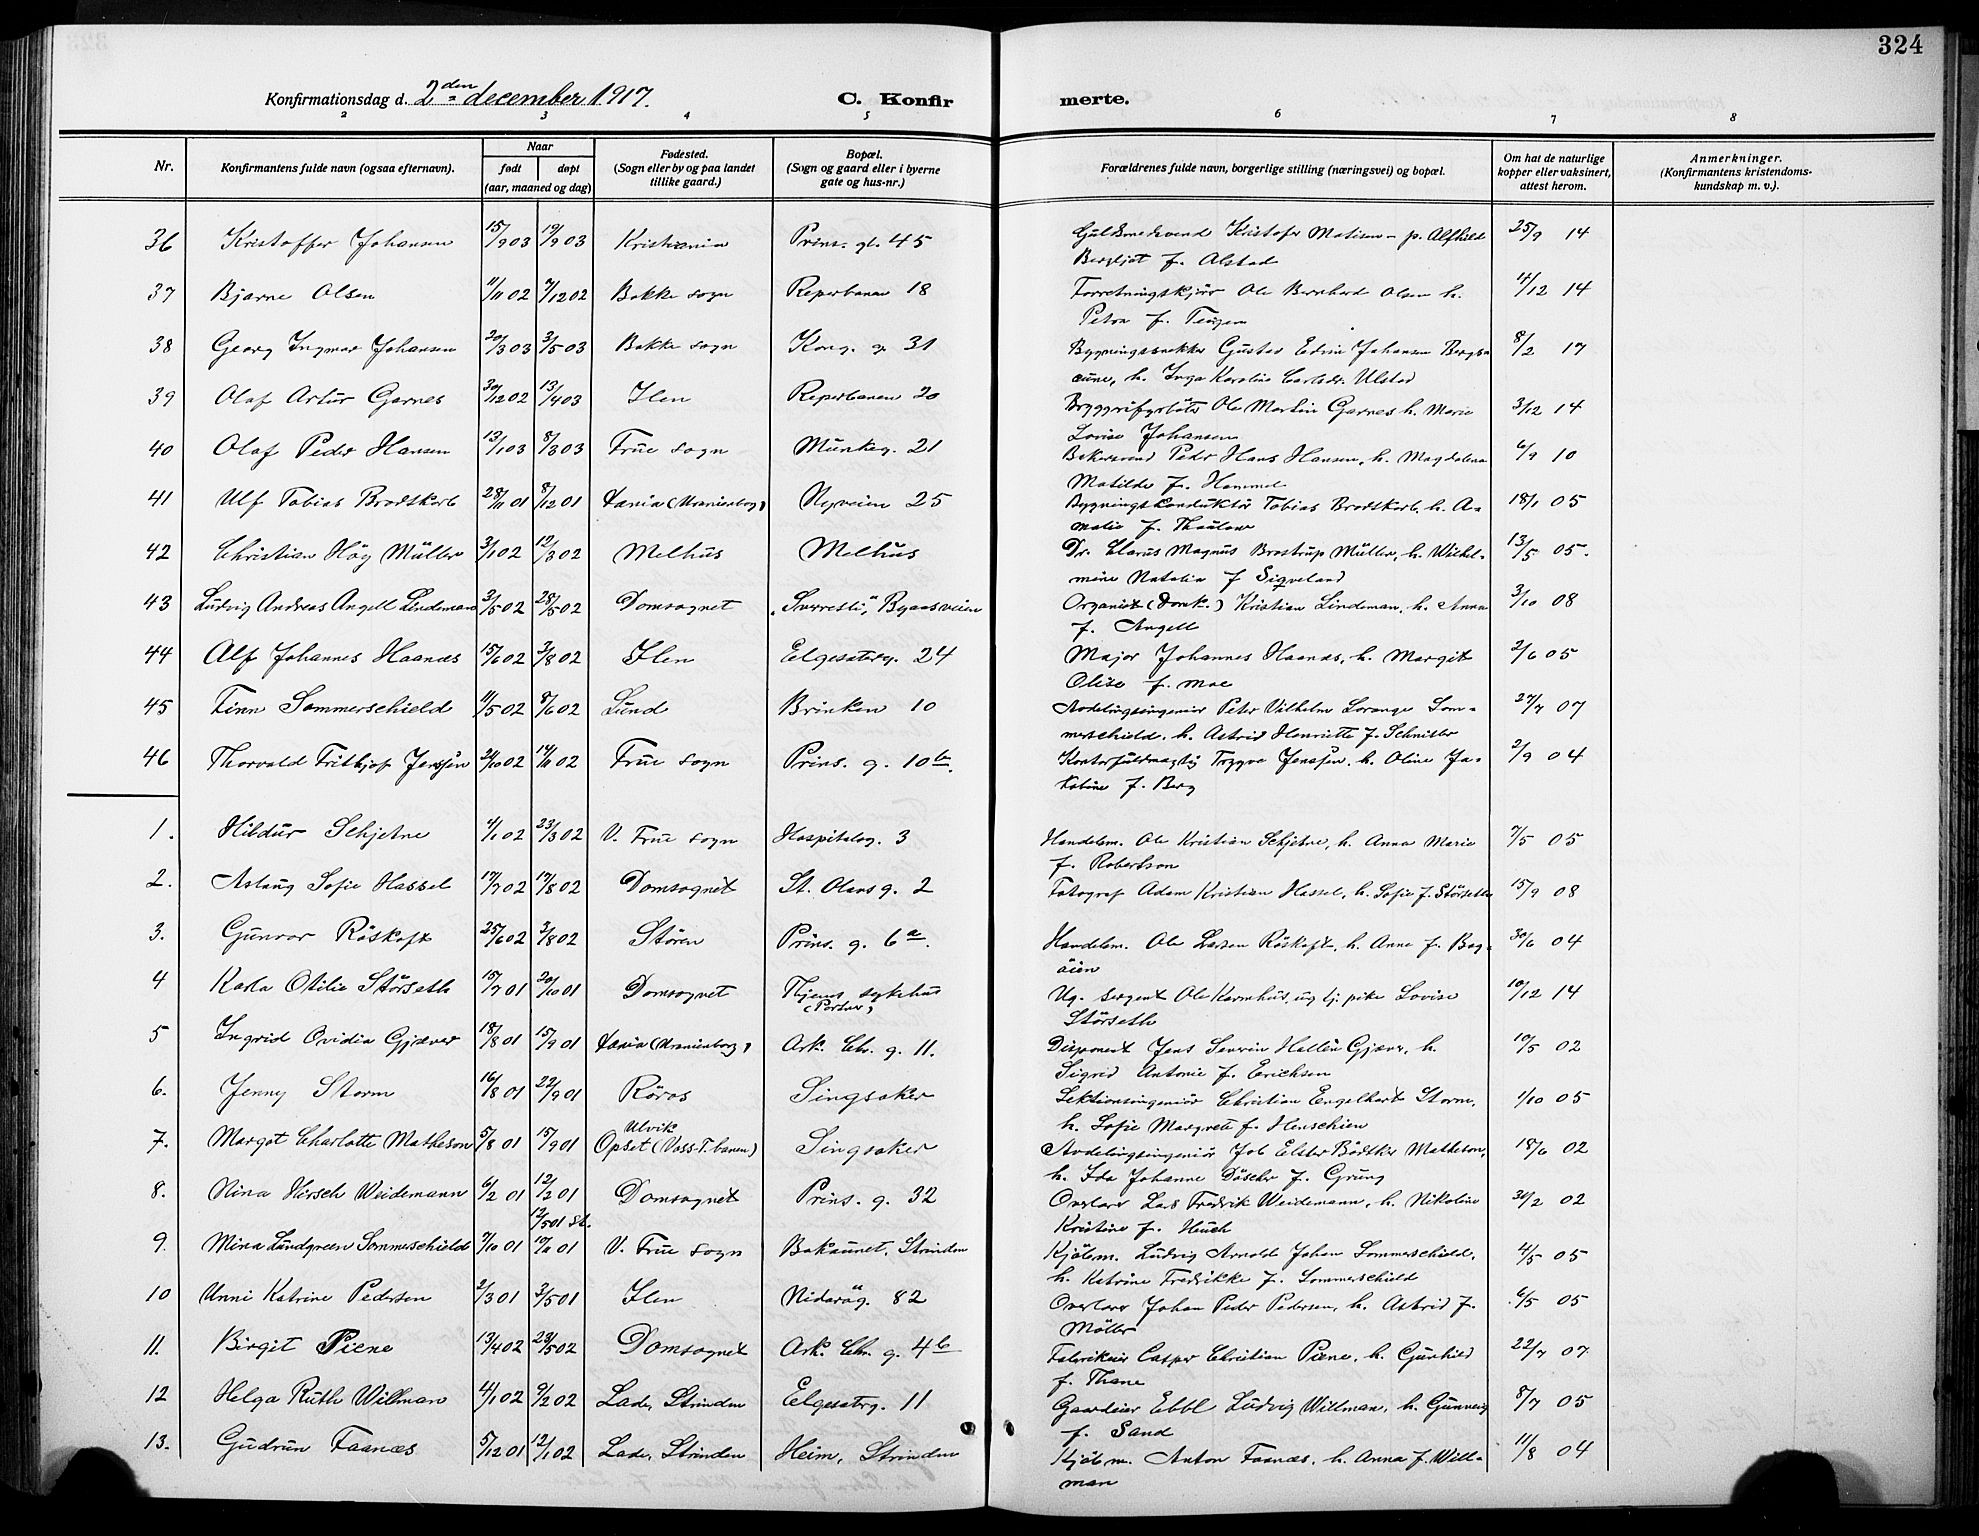 324
Konfirmationsdag d. 2den december 1917. C. Konfir merte.
2 3 4 5 6 7 8
Nr. Konfirmantens fulde navn (ogsaa efternavn). Naar født døpt (aar, maaned og dag) Fødested. (Sogn eller by og paa landet tillike gaard.) Bopæl. (Sogn og gaard eller i byerne gate og hus-nr.) Forældrenes fulde navn, borgerlige stilling (næringsvei) og bopæl. Om hat de naturlige kopper eller vaksinert, attest herom. Anmerkninger. (Konfirmantens kristendoms-kundskap m. v.).
36 Kristoffer Johansen 15/9 03 19/9 03 Kristiania Prins. gt. 45 Guldsmedsvend Kristofer Matisen - p. Alfhild 25/9 14
Bergljot f. Alstad
37 Bjarne Olsen 11/11 02 7/12 02 Bakke sogn Reperbanen 18 Forretningskjør Ole Bernhard Olsen h. 4/12 14
Petra f.
38 Georg Ingmar Johansen 20/3 03 3/5 03 Bakke sogn Kong. g. 31 Bygningssnekker Gustav Edvin Johansen 8/2 17
h. Inga Karoline Carlsdr. Ulstad
39 Olaf Artur Garnes 30/12 02 13/4 03 Ilen Reperbanen 20 Ole Martin Garnes h. Marie 3/12 14
Lovise Johansen
40 Olaf Peder Hansen 13/1 03 8/3 03 Frue sogn Munkeg. 21 Bakersvend Peder Hans Hansen, h. Magdalena 6/9 10
Matilde f. Hammel
41 Ulf Tobias Brodtkorb 28/11 01 8/12 01 Xania (Uranienborg) Nyveien 25 Bygningskonduktør Tobias Brodtkorb, h. A- 18/1 05
malie f. Thaulow
42 Christian Høy Müller 3/1 02 12/3 02 Melhus Melhus Dr. Clarus Magnus Brostrup Müller, h. Wilhel- 13/5 05.
mine Natalia f Siqveland
43 Ludvig Andreas Angell Lindeman 3/5 02 28/5 02 Domsognet "Sverresli", Byaasveien Organist (Domk.) Kristian Lindeman, h. Anna 3/10 08
f. Angell
44 Alf Johannes Haanæs 15/6 02 3/8 02 Ilen Elgesæterg. 24 Major Johannes Haanæs, h. Margit 2/6 05
Olise f. Moe
45 Finn Sommerschield 11/5 02 8/6 02 Lund Brinken 10 Avdelingsingeniør Peter Vilhelm Lorange Som- 27/7 07
merschield, h. Astrid Henriette f. Schnitler
46 Thorvald Fritkjof Jenssen 24/10 02 14/11 02 Frue sogn Prins. g. 10 b. Kontorfuldmægtig Trygve Jenssen, h. Oline Ja- 2/9 04
kobine f. Berg
1. Hildur Schjetne 4/1 02 23/3 02 V. Frue sogn Hospitalsg. 3 Handelsm. Ole Kristian Schjetne, h. Anna Marie 7/5 05
f. Robertson
2. Aslaug Sofie Hassel 17/7 02 17/8 02 Domsognet St. Olavs g. 2 Fotograf Adam Kristian Hassel, h. Sofie f. Störseth 15/9 08
3. Gunvor Röskaft 25/6 02 3/8 02 Stören Prins. g. 6 a. Handelsm. Ole Larsen Röskaft, h. Anne f. Bog- 30/6 04
öien
4 Karla Otilie Störseth 15/7 01 20/10 01 Domsognet Thjems sykehus Ug. sergent Ole Karmhus, ug tj. pike Lovise 10/12 14
(Portner) Störseth
5 Ingrid Ovidia Gjæver 18/8 01 15/9 01 Xania (Uranienborg) Ark. Chr. g. 11. Disponent Jens Severin Hallén Gjæver, h. 10/5 02
Sigrid Antonie f. Erichsen
6. Jenny Storm 16/8 01 22/9 01 Röros Singsaker Sektionsingeniör Christian Engelhart Storm, 1/10 05
h. Sofie Margrete f. Henschien
7. Margot Charlotte Matheson 5/8 01 15/9 01 Ulvik Opset (Voss-T. banen) Singsaker Avdelingsingeniör Job Elster Bödtker Matheson, 18/6 02
h. Ida Johanne Döscher f. Grung
8. Nina Hirsch Weidemann 6/2 01 12/2 01 Domsognet Prins. g. 32 Overlærer Lars Fredrik Weidemann, h. Nikoline 24/2 02
12/5 01 st. Kristine f. Huch
9. Mina Lundgreen Sommerschield 7/10 01 10/11 01 V. Frue sogn Bakaunet, Strinden Kjöbm. Ludvig Arnold Johan Sommerschield, 4/5 05
h. Katrine Fredrikke f. Sommerschield
10 Unni Katrine Pedersen 2/3 01 3/5 01 Ilen Nidarög. 82 Overlærer Johan Peder Pedersen, h. Astrid f. 6/5 05
Möller
11. Birgit Piene 13/4 02 23/5 02 Domsognet Ark. Chr. g. 4 b Fabrikeier Casper Christian Piene, h. Gunhild 22/7 07
f. Thane
12 Helga Ruth Willman 4/1 02 9/2 02 Lade, Strinden Elgesæterg. 11 Gaardeier Ebbl Ludvig Willman, h. Gunverig 8/7 05
f. Sand
13. Gudrun Faanæs 5/12 01 12/1 02 Lade, Strinden Heim, Strinden Kjöbm. Anton Faanæs, h. Anna f. Will- 11/8 04
man